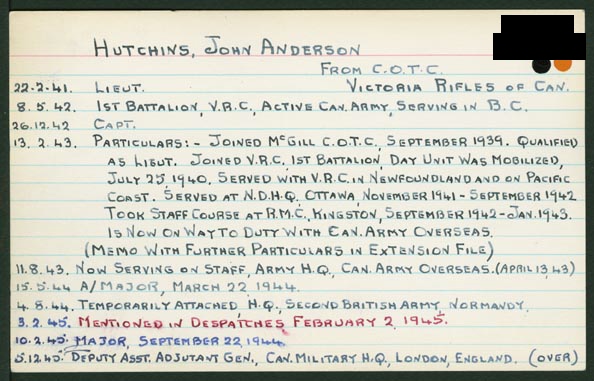 HUTCHINS, JOHN ANDERSON
FROM C.O.T.C.
22-2-41. LIEUT. VICTORIA RIFLES OF CAN.
8.5.42. 1ST BATTALION, V.R.C., ACTIVE CAN. ARMY, SERVING IN B.C.
26.12.42 CAPT.
13.2.43. PARTICULARS:- JOINED MCGILL C.O.T.C., SEPTEMBER 1939. QUALIFIED
AS LIEUT. JOINED V.R.C. 1ST BATTALION, DAY UNIT WAS MOBILIZED,
JULY 25, 1940. SERVED WITH V.R.C. IN NEWFOUNDLAND AND ON PACIFIC
COAST. SERVED AT N.D.H.Q. OTTAWA, NOVEMBER 1941 - SEPTEMBER 1942
TOOK STAFF COURSE AT R.M.C., KINGSTON, SEPTEMBER 1942-JAN. 1943.
IS NOW ON WAY TO DUTY WITH CAN. ARMY OVERSEAS.
(MEMO WITH FURTHER PARTICULARS IN EXTENSION FILE)
11.8.43. NOW SERVING ON STAFF, ARMY H.Q., CAN. ARMY OVERSEAS. (APRIL 13, 43)
15.5.44 A/MAJOR, MARCH 22 1944.
4.8.44. TEMPORARILY ATTACHED, H.Q., SECOND BRITISH ARMY, NORMANDY.
3.2.45. MENTIONED IN DESPATCHES FEBRUARY 2, 1945.
10.2.45. MAJOR, SEPTEMBER 22, 1944
5.12.45. DEPUTY ASST. ADJUTANT GEN., CAN. MILITARY H.Q., LONDON, ENGLAND. (OVER)